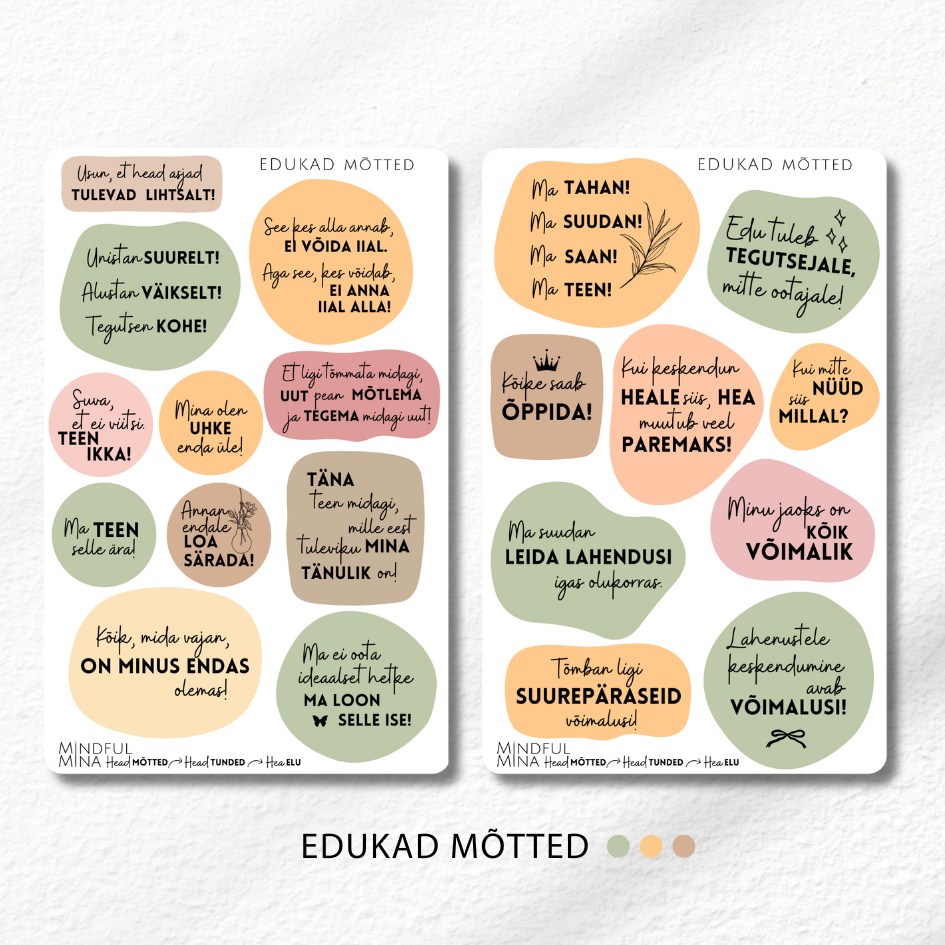 EDUKAD MÕTTED
Usun, et head asjad
TULEVAD LIHTSALT!
See kes alla annab,
EI VÕIDA IIAL.
Aga see, kes võidab,
EI ANNA
IIAL ALLA!
Unistan SUURELT!
Alustan VÄIKSELT!
Tegutsen KOHE!
Et ligi tõmmata midagi,
UUT pean MÕTLEMA
ja TEGEMA midagi uut!
Suva,
et ei viitsi.
TEEN
IKKA!
Mina olen
UHKE
enda üle!
TÄNA
teen midagi,
mille eest
tuleviku MINA
TÄNULIK on!
Ma TEEN
selle ära!
Annan
endale
LOA
SÄRADA!
Kõik, mida vajan,
ON MINUS ENDAS
olemas!
Ma ei oota
ideaalset hetke
MA LOON
SELLE ISE!
MINDFUL
MINA Head MÕTTED Head TUNDED Hea ELU
EDUKAD MÕTTED
Ma TAHAN!
Ma SUUDAN!
Ma SAAN!
Ma TEEN!
Edu tuleb
TEGUTSEJALE,
mitte ootajale!
Kõike saab
ÕPPIDA!
Kui keskendun
HEALE siis, HEA
muutub veel
PAREMAKS!
Kui mitte
NÜÜD
siis
MILLAL?
Ma suudan
LEIDA LAHENDUSI
igas olukorras.
Minu jaoks on
KÕIK
VÕIMALIK
Tõmban ligi
SUUREPÄRASEID
võimalusi!
Lahenustele
keskendumine
avab
VÕIMALUSI!
MINDFUL
MINA Head MÕTTED Head TUNDED Hea ELU
EDUKAD MÕTTED